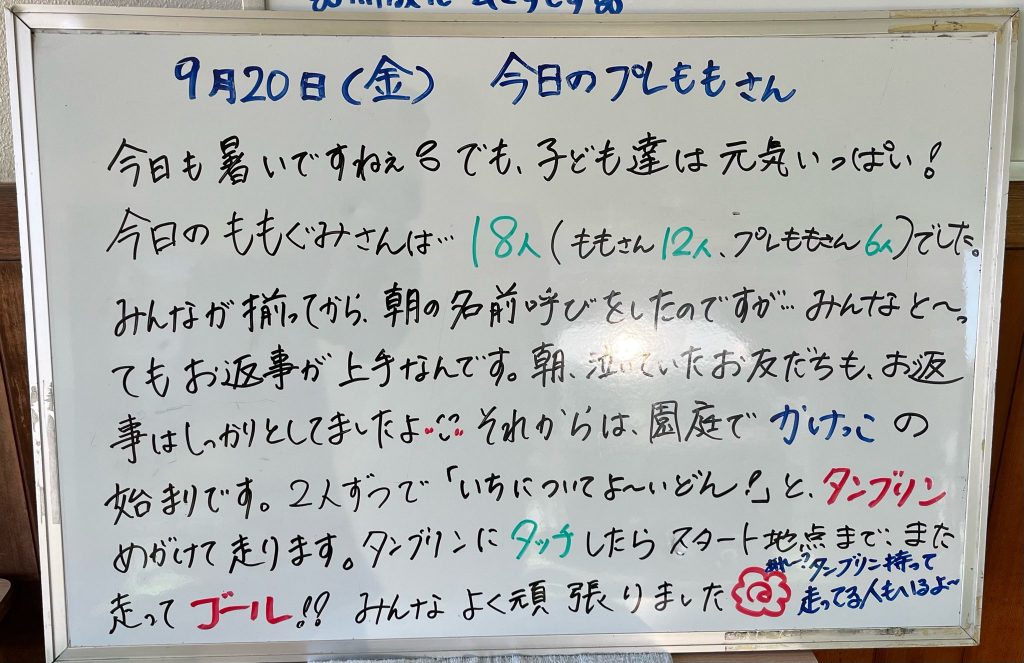 9月20日(金) 今日のプレももさん
今日も暑いですねぇ でも、子ども達は元気いっぱい!
今日のももぐみさんは… 18人(ももさん12人、プレももさん6人)でした。
みんなが揃ってから、朝の名前呼びをしたのですが…みんなと〜っ
てもお返事が上手なんです。朝、泣いていたお友だちも、お返
事はしっかりとしてましたよ それからは、園庭でかけっこの
始まりです。2人ずつで「いちについてよ〜いどん!」と、タンブリン
めがけて走ります。タンブリンにタッチしたらスタート地点まで、また
走ってゴール!! みんなよく頑張りました
タンブリン持って
走ってる人もいるよ〜